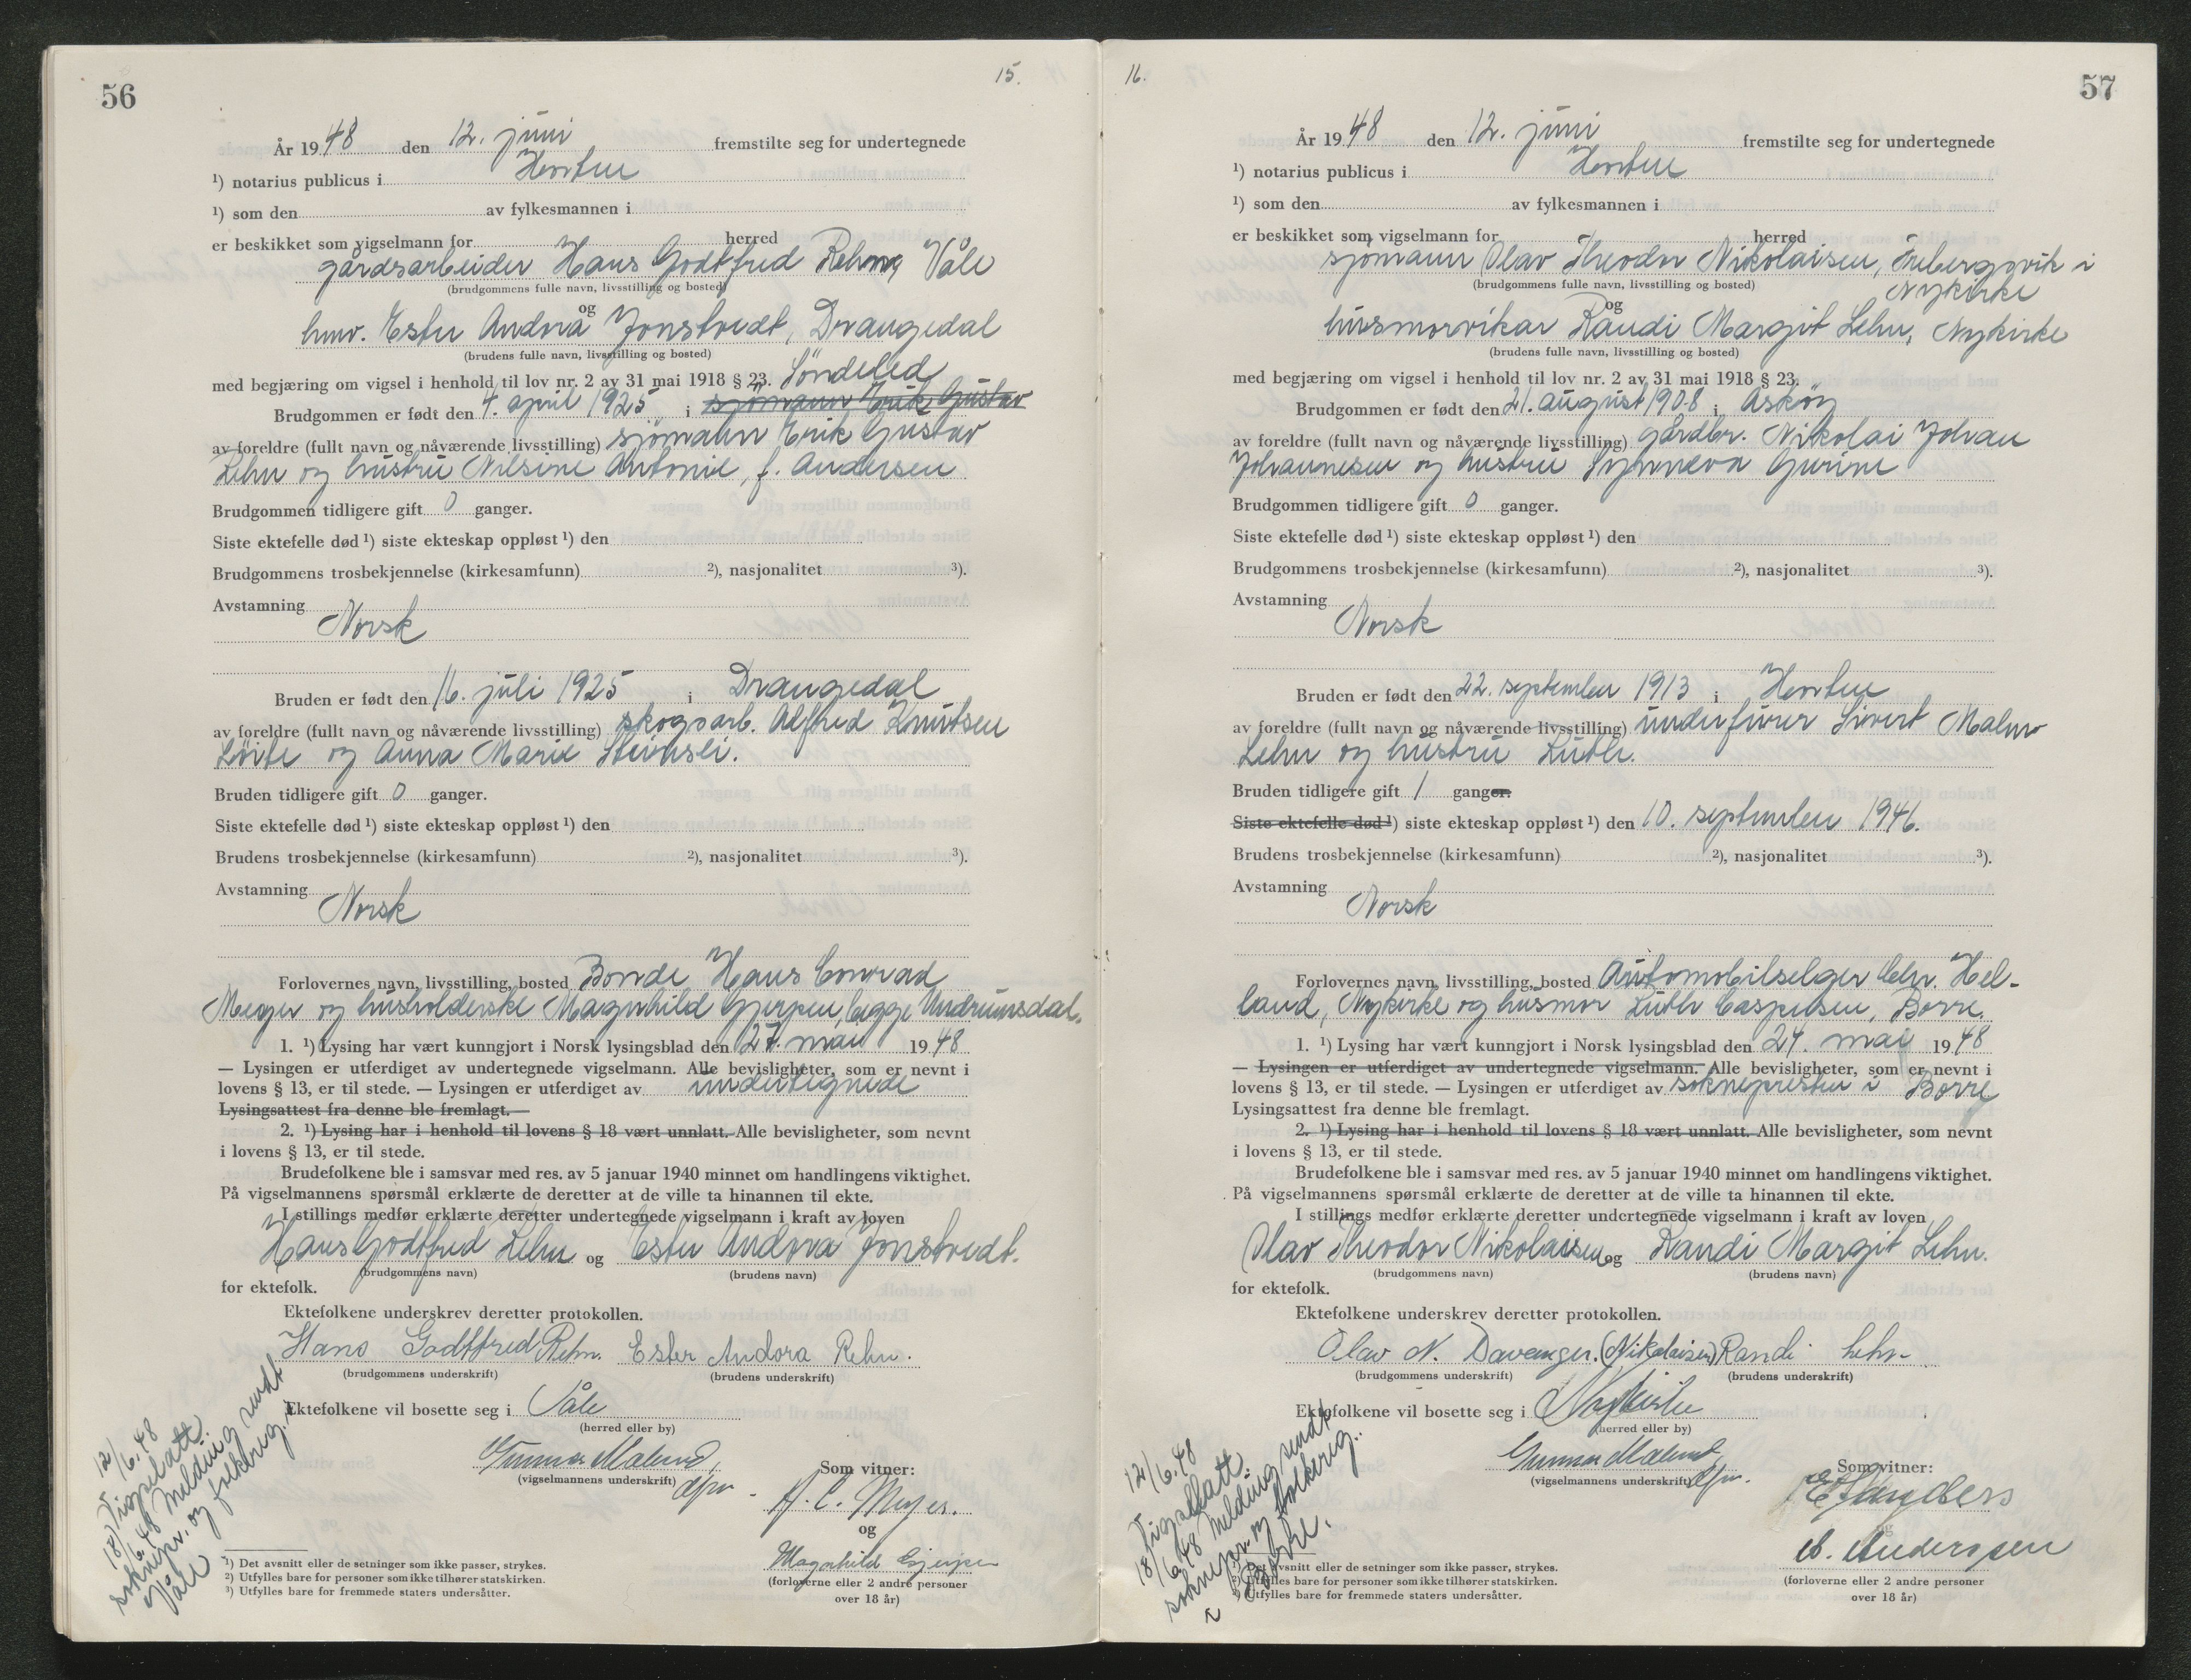 56
15.
År 1948 den 12. juni fremstilte seg for undertegnede
¹) notarius publicus i Horten
¹) som den av fylkesmannen i
er beskikket som vigselmann for herred
gårdsarbeider Hans Godtfred Rehn, Våle
(brudgommens fulle navn, livsstilling og bosted)
og
hmv. Ester Andora Jonstvedt, Drangedal
(brudens fulle navn, livsstilling og bosted)
med begjæring om vigsel i henhold til lov nr. 2 av 31 mai 1918 § 23. Söndeled
Brudgommen er født den 4. april 1925 i sjömann Erik Gustav
av foreldre (fullt navn og nåværende livsstilling) sjömann Erik Gustav
Lehn og hustru Nilsine Antonie, f. Andersen
Brudgommen tidligere gift 0 ganger.
Siste ektefelle død ¹) siste ekteskap oppløst ¹) den
Brudgommens trosbekjennelse (kirkesamfunn) ²), nasjonalitet ³).
Avstamning
Norsk
Bruden er født den 16. juli 1925 i Drangedal
av foreldre (fullt navn og nåværende livsstilling) skogsarb. Alfred Knutsen
Löite og Anna Marie Steinsli.
Bruden tidligere gift 0 ganger.
Siste ektefelle død ¹) siste ekteskap oppløst ¹) den
Brudens trosbekjennelse (kirkesamfunn) ²), nasjonalitet ³).
Avstamning
Norsk
Forlovernes navn, livsstilling, bosted Bonde Hans Conrad
Meyer og husholderske Magnhild Gjerpen, begge Undrumsdal.
1. ¹) Lysing har vært kunngjort i Norsk lysingsblad den 27. mai 1948
— Lysingen er utferdiget av undertegnede vigselmann. Alle bevisligheter, som er nevnt i
lovens § 13, er til stede. — Lysingen er utferdiget av undertegnede
Lysingsattest fra denne ble fremlagt. —
2. ¹) Lysing har i henhold til lovens § 18 vært unnlatt. Alle bevisligheter, som nevnt
i lovens § 13, er til stede.
Brudefolkene ble i samsvar med res. av 5 januar 1940 minnet om handlingens viktighet.
På vigselmannens spørsmål erklærte de deretter at de ville ta hinannen til ekte.
I stillings medfør erklærte deretter undertegnede vigselmann i kraft av loven
Hans Godtfred Lehn og Ester Andora Jonstvedt.
(brudgommens navn) (brudens navn)
for ektefolk.
Ektefolkene underskrev deretter protokollen.
Hans Godtfred Rehn. Ester Andora Rehn.
(brudgommens underskrift) (brudens underskrift)
Ektefolkene vil bosette seg i Våle
(herred eller by)
Gunnar Malund,
(vigselmannens underskrift) dfm.
Som vitner:
H. C. Meyer.
og
Magnhild Gjerpen
(forloverne eller 2 andre personer
over 18 år)
12/6.48
Vigselatt.
18/6.48 Melding sendt
soknepr. og folkereg. i
Våle
¹) Det avsnitt eller de setninger som ikke passer, strykes.
²) Utfylles bare for personer som ikke tilhører statskirken.
³) Utfylles bare for fremmede staters undersåtter.
16.
57
År 1948 den 12. juni fremstilte seg for undertegnede
¹) notarius publicus i Horten
¹) som den av fylkesmannen i
er beskikket som vigselmann for herred
sjömann Olav Theodor Nikolaisen, Frebergsvik i
Nykirke
(brudgommens fulle navn, livsstilling og bosted)
og
husmorvikar Randi Margit Lehn, Nykirke
(brudens fulle navn, livsstilling og bosted)
med begjæring om vigsel i henhold til lov nr. 2 av 31 mai 1918 § 23.
Brudgommen er født den 21. august 1908 i Asköy
av foreldre (fullt navn og nåværende livsstilling) gårdbr. Nikolai Johan
Johannesen og hustru Synneva Gurine
Brudgommen tidligere gift 0 ganger.
Siste ektefelle død ¹) siste ekteskap oppløst ¹) den
Brudgommens trosbekjennelse (kirkesamfunn) ²), nasjonalitet ³).
Avstamning
Norsk
Bruden er født den 22. september 1913 i Horten
av foreldre (fullt navn og nåværende livsstilling) underfurer Sivert Malm
Lehn og hustru Luthe.
Bruden tidligere gift 1 ganger.
Siste ektefelle død ¹) siste ekteskap oppløst ¹) den 10. september 1946.
Brudens trosbekjennelse (kirkesamfunn) ²), nasjonalitet ³).
Avstamning
Norsk
Forlovernes navn, livsstilling, bosted Automobilselger Chr. Hel-
land, Nykirke og husmor Luthe Caspersen, Borre.
1. ¹) Lysing har vært kunngjort i Norsk lysingsblad den 24. mai 1948
— Lysingen er utferdiget av undertegnede vigselmann. Alle bevisligheter, som er nevnt i
lovens § 13, er til stede. — Lysingen er utferdiget av soknepresten i Borre
Lysingsattest fra denne ble fremlagt.
2. ¹) Lysing har i henhold til lovens § 18 vært unnlatt. Alle bevisligheter, som nevnt
i lovens § 13, er til stede.
Brudefolkene ble i samsvar med res. av 5 januar 1940 minnet om handlingens viktighet.
På vigselmannens spørsmål erklærte de deretter at de ville ta hinannen til ekte.
I stillings medfør erklærte deretter undertegnede vigselmann i kraft av loven
Olav Theodor Nikolaisen og Randi Margit Lehn.
(brudgommens navn) (brudens navn)
for ektefolk.
Ektefolkene underskrev deretter protokollen.
Olav N. Davanger. (Nikolaisen) Randi Lehn
(brudgommens underskrift) (brudens underskrift)
Ektefolkene vil bosette seg i Nykirke
(herred eller by)
Gunnar Malund,
(vigselmannens underskrift) dfm.
Som vitner:
og
A. Anderssen
(forloverne eller 2 andre personer
over 18 år)
12/6.48
Vigselatt.
18/6.48 Melding sendt
soknepr. og folkereg.
i Borre.
¹) Det avsnitt eller de setninger som ikke passer, strykes.
²) Utfylles bare for personer som ikke tilhører statskirken.
³) Utfylles bare for fremmede staters undersåtter.